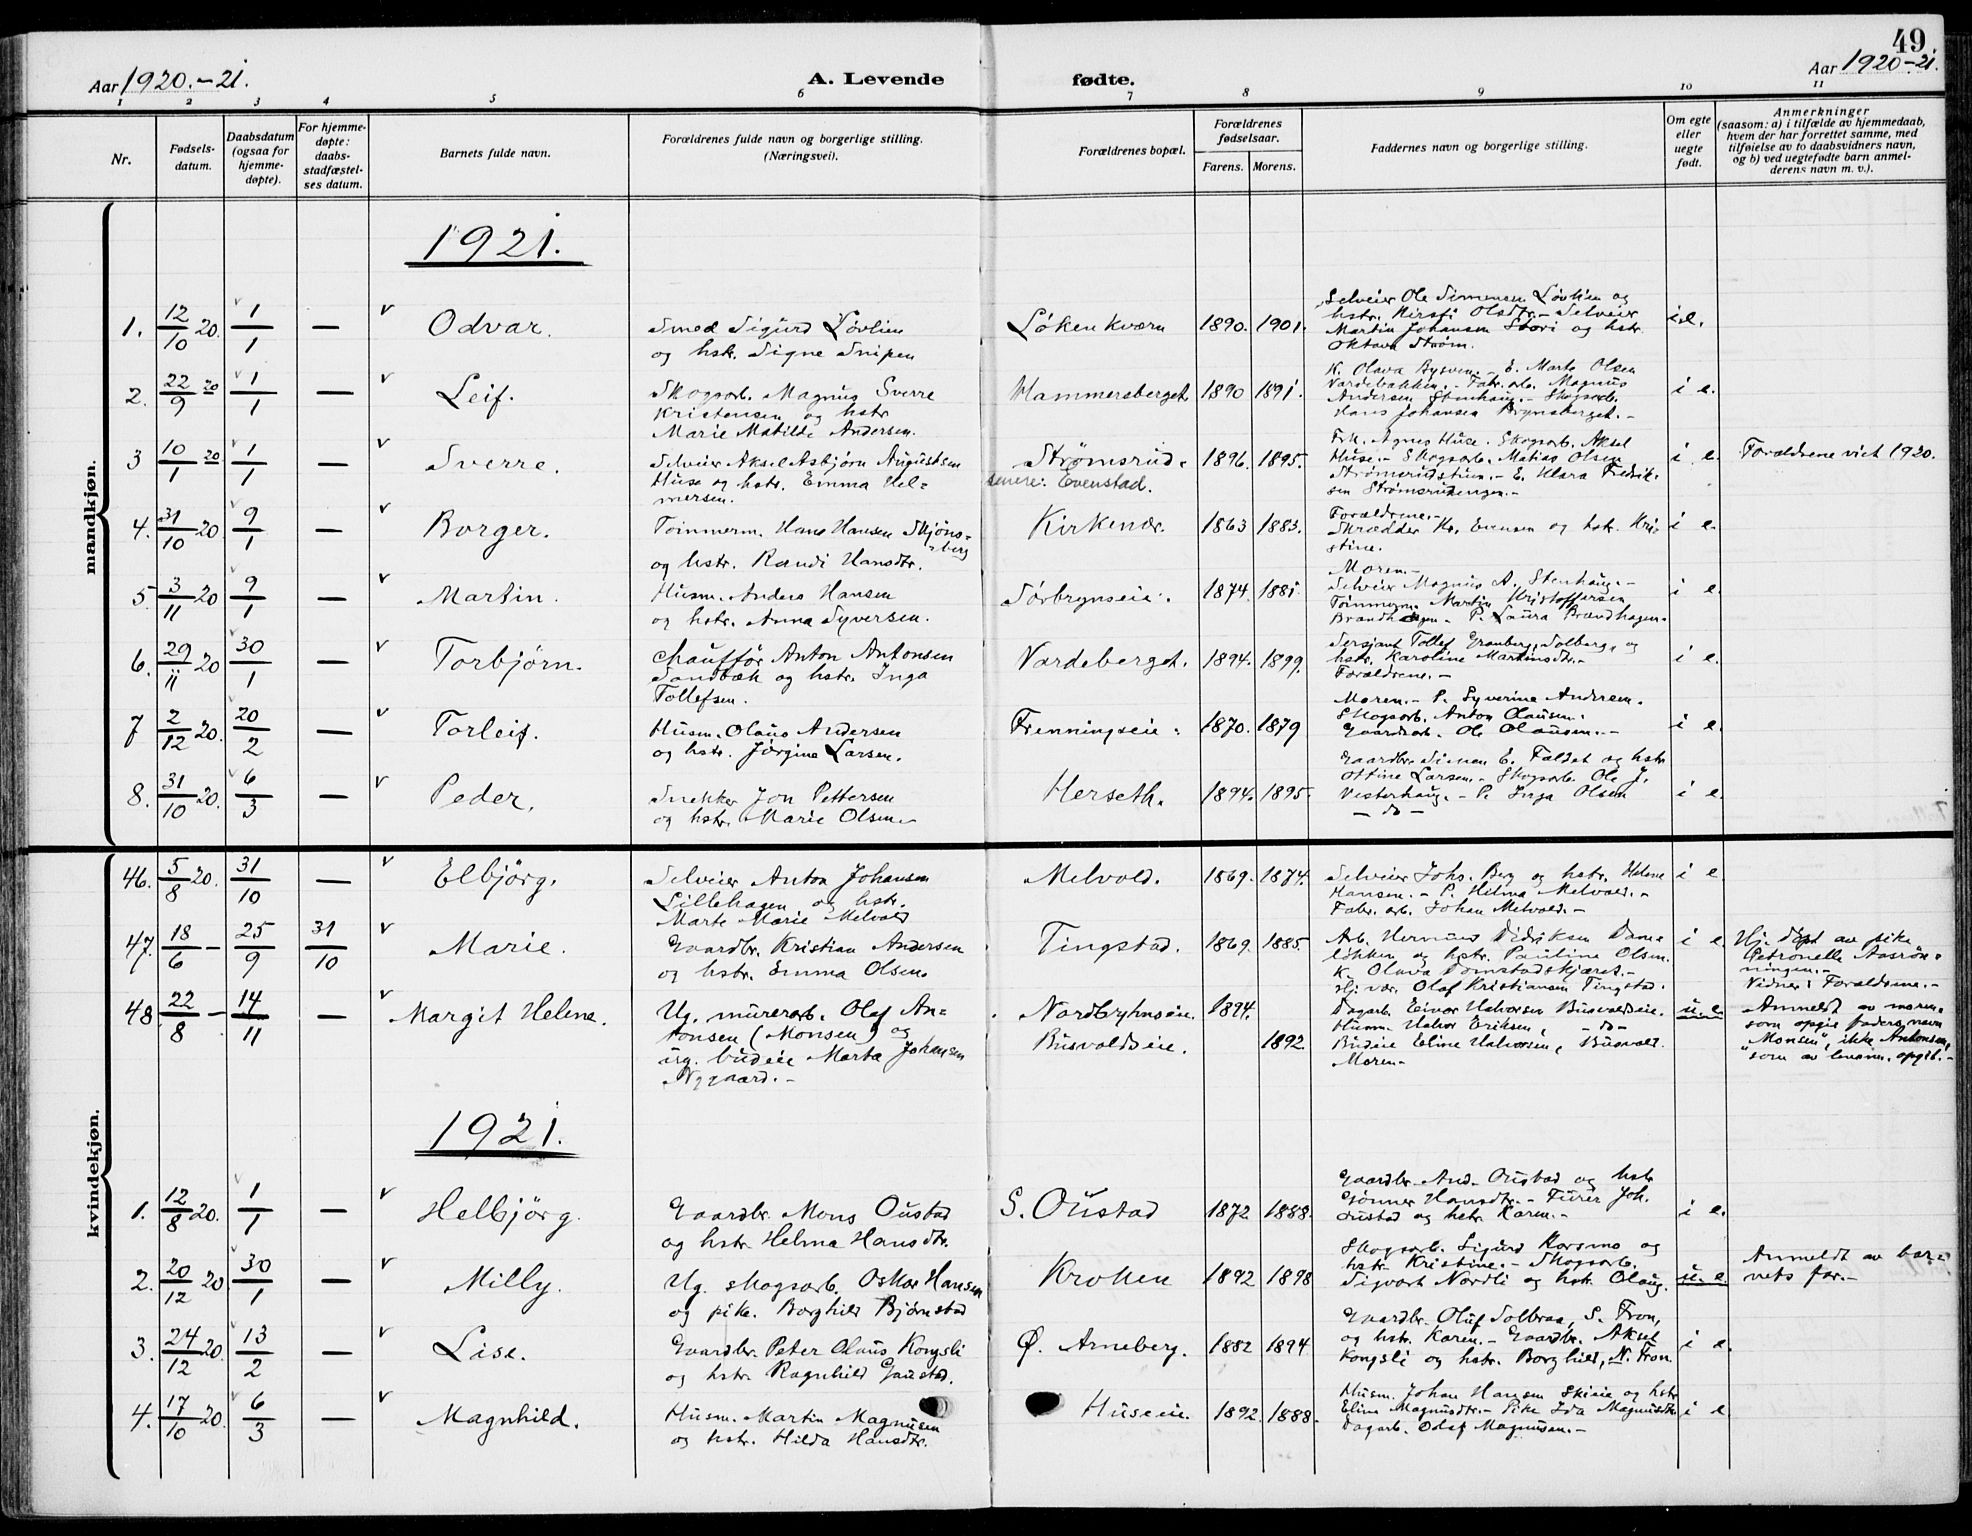 49
Aar 1920.-21.
A. Levende fødte.
Aar 1920-21.
1 2 3 4 5 6 7 8 9 10 11
Nr.
Fødsels-
datum.
Daabsdatum
(ogsaa for
hjemme-
døpte).
For hjemme-
døpte:
daabs-
stadfæstel-
ses datum.
Barnets fulde navn.
Forældrenes fulde navn og borgerlige stilling.
(Næringsvei).
Forældrenes bopæl.
Forældrenes
fødselsaar.
Farens. Morens.
Faddernes navn og borgerlige stilling.
Om egte
eller
uegte
født.
Anmerkninger
(saasom: a) i tilfælde av hjemmedaab,
hvem der har forrettet samme, med
tilføielse av to daabsvidners navn,
og b) ved uegtefødte barn anmel-
derens navn m. v.).
mandkjøn.
1921.
1. 12/10 20. 1/1 — Odvar.
Smed Sigurd Løvlien
og hstr. Signe Snipen
Løken kværn 1890. 1901.
Selveier Ole Simensen Løvlien og
hstr. Kirsti Olsdtr. - Selveier
Martin Johansen Stori og hstr.
Oktava Strøm.
i e.
2. 22/9 20 1/1 — Leif.
Skogsarb. Magnus Sverre
Kristensen og hstr
Marie Matilde Andersen.
Hammersberget 1890 1891.
K. Olava Bysven. - E. Marte Olsen
Vardebakken. - Fabr. arb. Magnus
Andersen Stenhaug. - Skogsarb.
Hans Johansen Brynsberget. -
i e.
3 10/1 20 1/1 — Sverre.
Selveier Aksel Asbjørn Augustsen
Huse og hstr. Emma Hel-
mersen.
Strømsrud.
senere: Evenstad.
1896. 1895.
Frk. Agnes Huse. Skogsarb. Aksel
Huse. - Skogsarb. Matias Olsen
Strømsrudstuen. - E. Klara Fredrik-
sen Strømsrudengen. -
Forældrene. -
i e.
Forældrene viet 1920.
4. 31/10 20 9/1 — Borger.
Tømmerm. Hans Hansen Skjøns-
berg
og hstr. Randi Hansdtr.
Kirkenær. 1863 1883.
Skrædder Kr. Evensen og hstr. Kri-
stine.
Moren. -
i e.
5. 3/11 20 9/1 — Martin.
Husm. Anders Hansen
og hstr. Anna Syversen.
Sørbrynseie. 1874. 1881.
Selveier Magnus A. Stenhaug. -
Tømmerm. Martin Kristoffersen
Brandhagen. - P. Laura Brandhagen.
i e.
6. 29/11 20 30/1 — Torbjørn.
Chauffør Anton Antonsen
Sandbæk og hstr. Inga
Tollefsen.
Vardeberget. 1894. 1899.
Sersjant Tollef Granberg, Solberg, og
hstr. Karoline Martinsdtr. -
Forældrene. -
i e.
7 2/12 20. 20/2 — Torleif.
Husm. Olaus Andersen
og hstr. Jørgine Larsen.
Frenningseie. 1870. 1879
Moren. - P. Syverine Andersen.
Skogsarb. Anton Olausen.
Gaardsarb. Ole Olausen. -
i e.
8. 31/10 20. 6/3 — Peder.
Snekker Jon Pettersen
og hstr. Marie Olsen. -
Herseth. 1894. 1895.
Gaardbr. Simen E. Faldet og hstr
Ottine Larsen. - Skogsarb. Ole J.
Vesterhaug. - P. Inga Olsen
- do -
i e.
kvindekjøn.
46. 5/8 20. 31/10 — Elbjørg.
Selveier Anton Johansen
Lillehagen og hstr.
Marte Marie Melvold
Melvold. 1869. 1874.
Selveier Johs. Berg og hstr. Helene
Hansen. - P. Hilma Melvold. -
Fabr. arb. Johan Melvold. -
i e.
47. 18/6 - 25/9 31/10 Marie.
Gaardbr. Kristian Andersen
og hstr. Emma Olsen.
Tingstad. 1869. 1885.
Arb. Hermund Didriksen Dame-
løkken og hstr. Pauline Olsen.
K. Olava Domstadskjæret. -
Hj. vær. Olaf Kristiansen Tingstad.
i e.
Hj. døpt av pike
Petronelle Aasrøn-
ningen. -
Vidner: Forældrene. -
48 22/8 - 14/11 — Margit Helene.
Ug. murerarb. Olaf An-
tonsen (Monsen) og
ug. budeie Marta Johansen
Nygaard. -
Nordbyhnseie. 1894.
Busvoldseie. 1892.
Dagarb. Einar Halvorsen Busvoldseie.
Husm. Halvor Eriksen, - do -
Budeie Eline Halvorsen, Busvold.
Moren -
u. e.
Anmeldt av moren,
som opgir faderens navn
"Monsen", ikke Antonsen,
som av lensm. opgit. -
1921.
1. 12/8 20. 1/1 — Helbjørg.
Gaardbr. Mons Oustad
og hstr. Helma Hansdtr.
S. Oustad 1872 1888.
Gaardbr. And. Oustad og hstr
Gønner Hansdtr. - Furer Joh.
Oustad og hstr. Karen. -
i e.
2. 20/12 20 30/1 — Milly.
Ug. skogsarb. Oskar Hansen
og pike. Borghild Bjørnstad
Kroken 1892 1898
Skogsarb. Sigurd Korsmo og
hstr. Kristine. - Skogsarb.
Sigvart Nordli og hstr. Olaug.
u. e.
Anmeldt av bar-
nets far. -
3. 24/12 20. 13/2 — Lise.
Gaardbr. Peter Olaus Kongsli
og hstr. Ragnhild Gaustad.
Ø. Arneberg. 1882 1894
Gaardbr. Oluf Solbraa, S. Fron,
og hstr. Karen. - Gaardbr. Aksel
Kongsli og hstr. Borghild, N. Fron.
i e.
4. 17/10 20. 6/3 — Magnhild.
Husm. Martin Magnusen
og hstr. Hilda Hansdtr.
Huseie. 1892. 1888.
Husm. Johan Hansen Skieie og hstr
Eline Magnusdtr. - Pike Ida Magnusdtr.
Dagarb. Olaf Magnusen. -
i e.